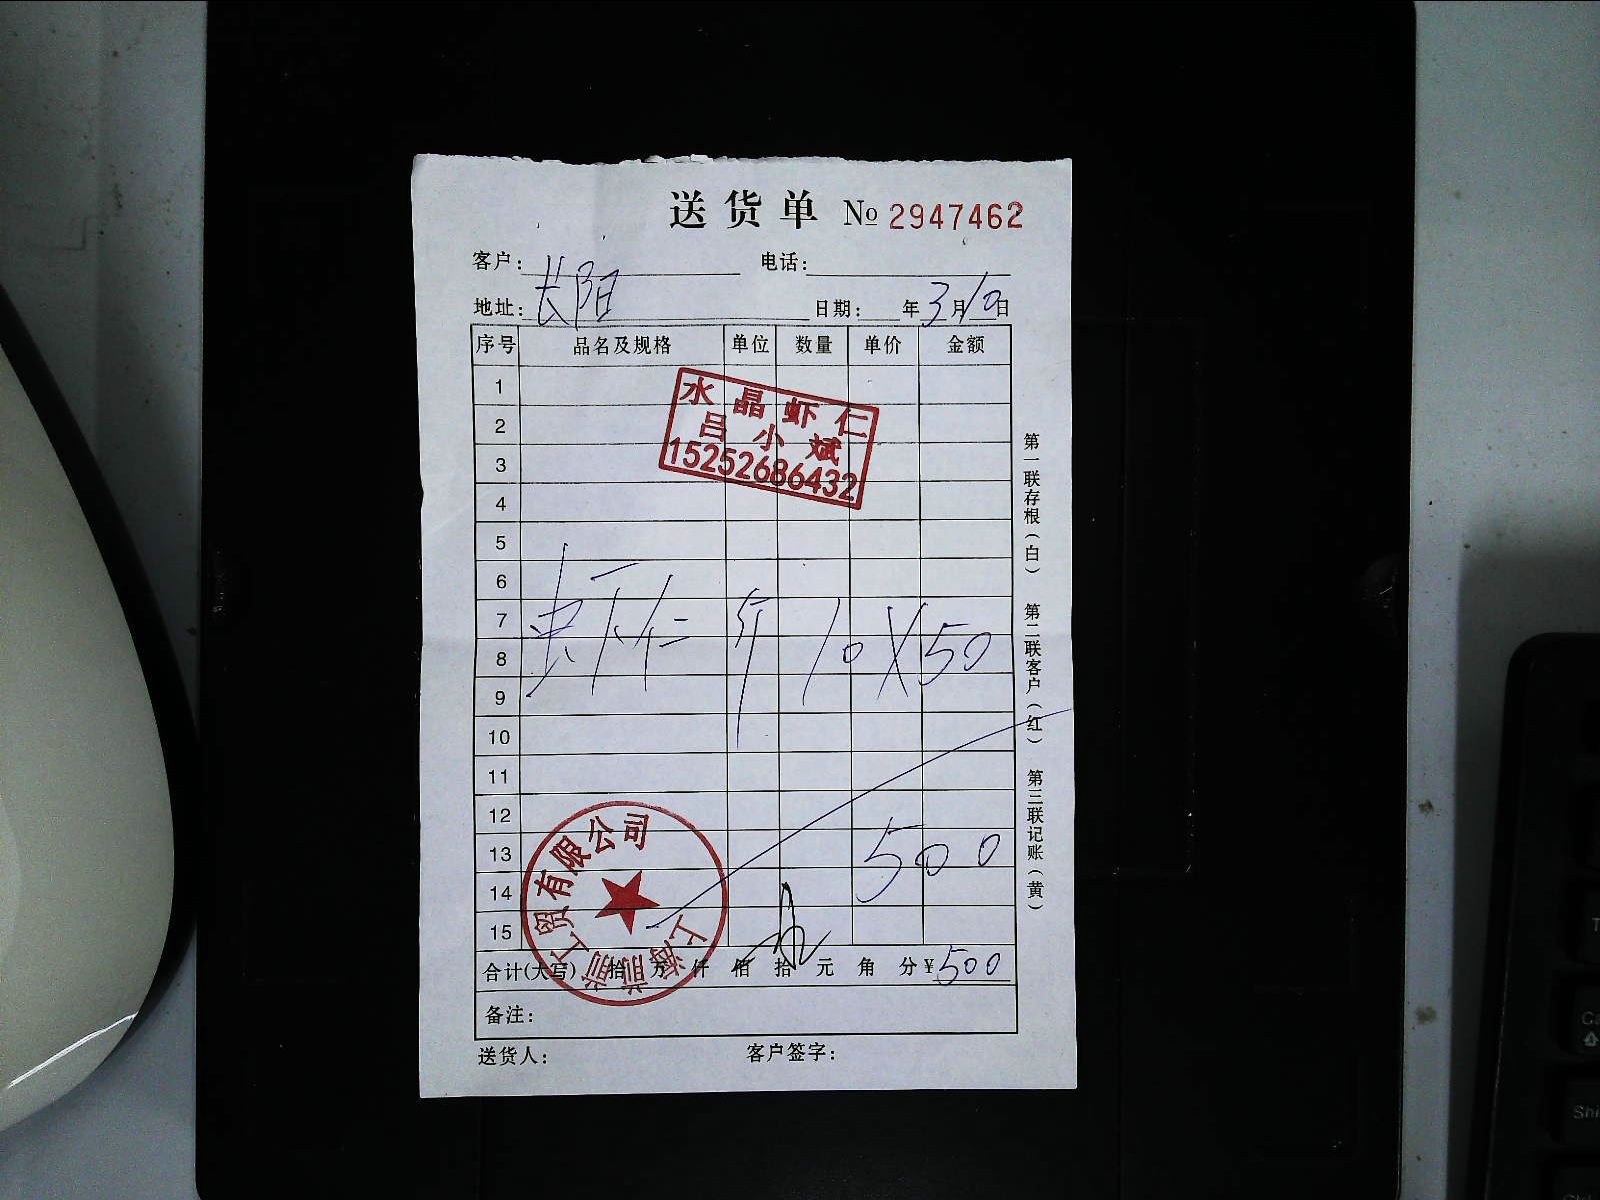 送货单 № 2947462
客户: 长阳 电话:
地址: 日期: 年3月10日
序号 品名及规格 单位 数量 单价 金额
1
2
3
4
5
6
7
8
9
10
11
12
13
14
15
水晶虾仁
吕小斌
15252686432
虾仁 斤 10X50
500
合计(大写) 拾 万 仟 佰 拾 元 角 分 ¥500
备注:
送货人: 客户签字:
第一联存根(白) 第二联客户(红) 第三联记账(黄)
上海前前工贸有限公司
T
Ca
Shi